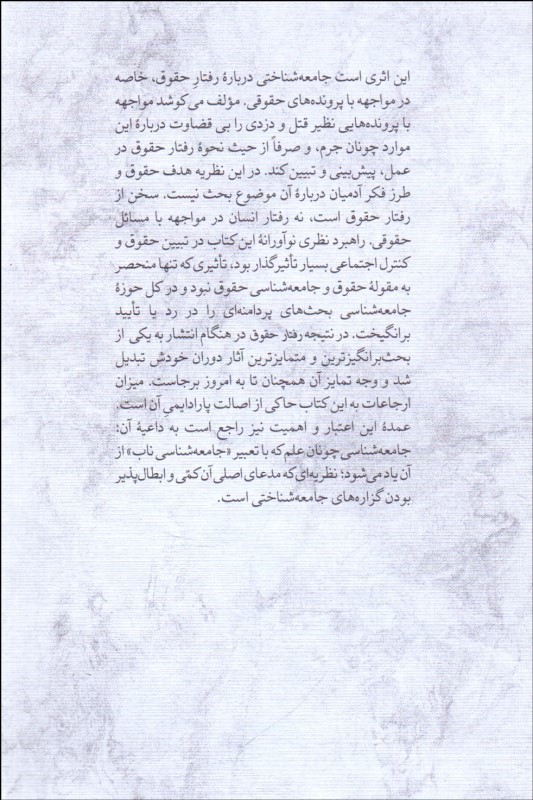 این اثری است جامعه‌شناختی دربارهٔ رفتارِ حقوق، خاصه
در مواجهه با پرونده‌های حقوقی. مؤلف می‌کوشد مواجهه
با پرونده‌هایی نظیر قتل و دزدی را بی قضاوت دربارهٔ این
موارد چونان جرم، و صرفاً از حیث نحوهٔ رفتار حقوق در
عمل، پیش‌بینی و تبیین کند. در این نظریه هدف حقوق و
طرز فکر آدمیان دربارهٔ آن موضوع بحث نیست. سخن از
رفتار حقوق است، نه رفتار انسان در مواجهه با مسائل
حقوقی. راهبرد نظری نوآورانهٔ این کتاب در تبیین حقوق و
کنترل اجتماعی بسیار تأثیرگذار بود، تأثیری که تنها منحصر
به مقولهٔ حقوق و جامعه‌شناسی حقوق نبود و در کل حوزهٔ
جامعه‌شناسی بحث‌های پردامنه‌ای را در رد یا تأیید
برانگیخت. در نتیجه رفتار حقوق در هنگام انتشار به یکی از
بحث‌برانگیزترین و متمایزترین آثار دوران خودش تبدیل
شد و وجه تمایز آن همچنان تا به امروز برجاست. میزان
ارجاعات به این کتاب حاکی از اصالت پارادایمیِ آن است.
عمدهٔ این اعتبار و اهمیت نیز راجع است به داعیهٔ آن؛
جامعه‌شناسی چونان علم که با تعبیر «جامعه‌شناسی ناب» از
آن یاد می‌شود؛ نظریه‌ای که مدعای اصلی آن کمّی و ابطال‌پذیر
بودن گزاره‌های جامعه‌شناختی است.